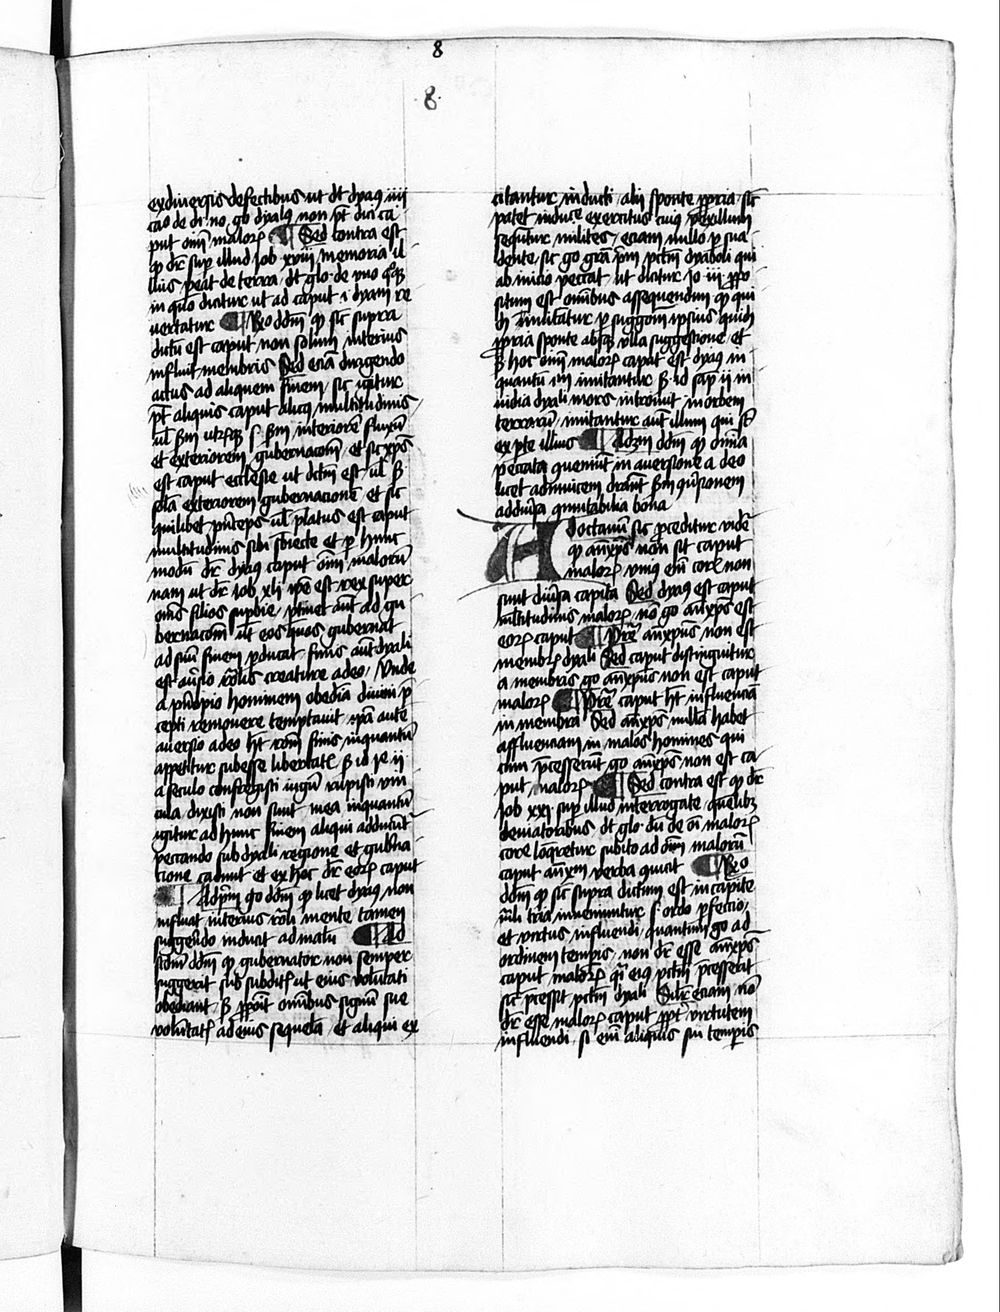 8
8
ex diuersis defectibus ut dt dyaus iiii
cao de di no. go dyalus non pt dici ca
put oim malor Sed contra est
qp dr sup illud Job xviii memoria il
lius peat de terra dt glo de uno qsqz
in quo dicitur ut ad caput i dyam re
uertatur Rno ddm qp sic supra
dictu est caput non solum interius
influit membris Sed eciam dirigendo
actus ad aliquem finem sic igitur
pt aliquis caput alicuius multitudinis
ul scdm utrqz s scdm interiore fluxum
et exteriorem gubernacom et sic xps
est caput ecclesie ut dctm est ul scdm
sola exteriorem gubernacione et sic
quilibet princeps ul platus est caput
multitudinis sibi sbiecte et p hunc
modu dr dyaus caput oim maloru
nam ut dr Job xli ipe est rex super
oms filios supbie ptinet aut ad gu
bernacom ut eos quos gubernat
ad suu finem pducat finis aut dyali
est auersio ronlis creature a deo Unde
a pncipio hominem obedia diuini p
cepti remouere temptauit ipa aute
auersio a deo ht rom finis inquantu
appetitur sub esse libertatis scdm id Je ii
a seculo confregisti iugu rupisti uin
cula dixisti non seruiam inquantu
igitur ad hunc finem aliqui adducunt
peccando sub dyali regione et gubna
cione cadunt et ex hoc dr eor caput
Ad pm go ddm qp licet dyaus non
influat interius ronli mente tamen
suggerendo inducit ad malu Ad
scdm ddm qp gubernator non semper
suggerit sub subditis ut eius voluntati
obediant s pponit omnibus signu sue
voluntatis ad cuius sequela et aliqui ex
citantur inducti alii sponte ppria sic
patet in duce exercitus cuius vexillum
sequntur milites eciam nullo p sua
dente sic go gra pm pctm dyaboli qui
ab inicio peccat ut dicitur Jo iii ppo
situm est omnibus assequendum qp qui
dam imitatur p suggestom ipsius quidam
ppria sponte absqz ulla suggestione et
scdm hoc oim malor caput est dyaus in
quantu illu imitantur scdm id sap ii in
uidia dyali mors introiuit in orbem
terrarum imitantur aut illum qui st
ex pte illius Ad 3m ddm qp omia
peccata conueniunt in auersione a deo
licet adinuicem differant scdm conuersionem
ad diuersa commutabilia bona
Ad octauum sic proceditur videtur
qp anxps non sit caput
malor unius em corporis non
sunt diuersa capita Sed dyaus est caput
multitudinis malor no go anxps est
eor caput Pre anxpus non est
membrum dyali Sed caput distinguitur
a membris go anxpus non est caput
malor Pre caput ht influencia
in membra Sed anxps nulla habet
affluenciam in malos homines qui
eum pcesserunt go anxps non est ca
put malor Sed contra est qp dr
Job xxi sup illud interrogate quelibz
de uiatoribus dt glo du de oi malor
corpore loqretur subito ad oim maloru
caput anxpm verba quicit Rno
ddm qp sic supra dictum est in capite
nali tria inueniuntur s ordo pfectio
et virtus influendi quantum go ad
ordinem tempis non dr esse anxps
caput malor qi eius pctm pcesserit
sic pcessit pctm dyali Silr eciam no
dr esse malor caput ppt virtutem
influendi si em aliquis sui temporis